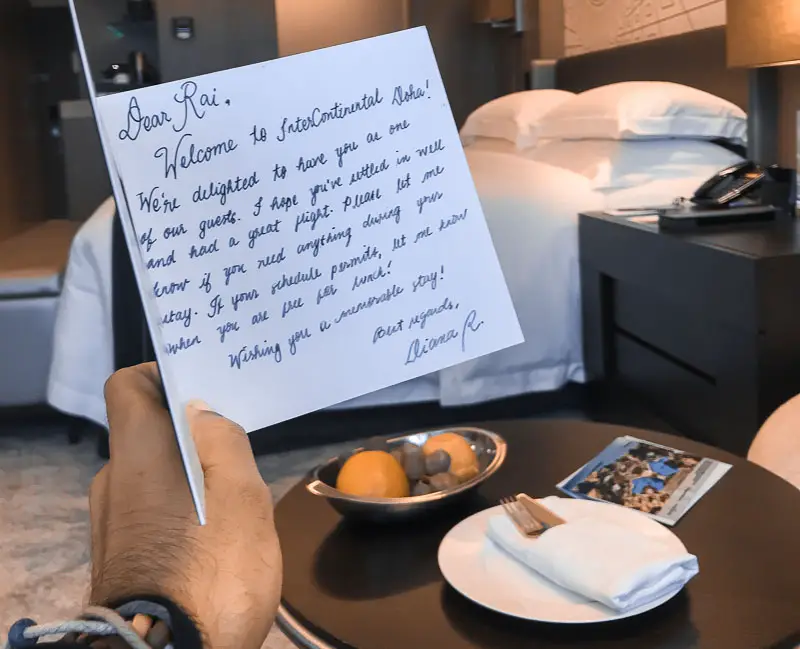 Dear Rai,
Welcome to InterContinental Doha!
We're delighted to have you as one
of our guests. I hope you've settled in well
and had a great flight. Please let me
know if you need anything during your
stay. If your schedule permits, let me know
when you are free for lunch!
Wishing you a memorable stay!
Best regards,
Diana R.